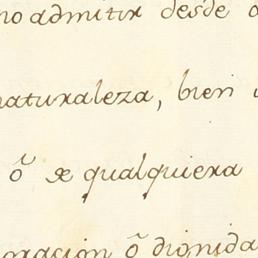 no admitir desde
naturaleza, bien
ò de qualquiera
oracion ò dignida